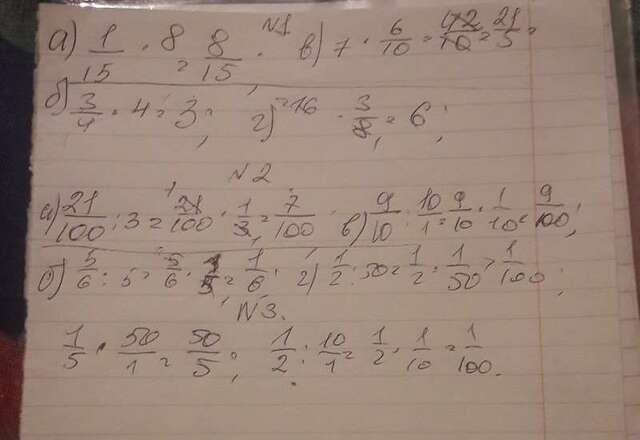 N1
а) 1/15 · 8 = 8/15; в) 7 · 6/10 = 42/10 = 21/5 =
б) 3/4 · 4 = 3; г) 16 · 3/8 = 6;
N2
а) 21/100 : 3 = 21/100 · 1/3 = 7/100 в) 9/10 : 10/1 = 9/10 · 1/10 = 9/100;
б) 5/6 : 5 = 5/6 · 1/5 = 1/6; г) 1/2 : 50 = 1/2 · 1/50 = 1/100;
N3.
1/5 · 50/1 = 50/5; 1/2 : 10/1 = 1/2 · 1/10 = 1/100.